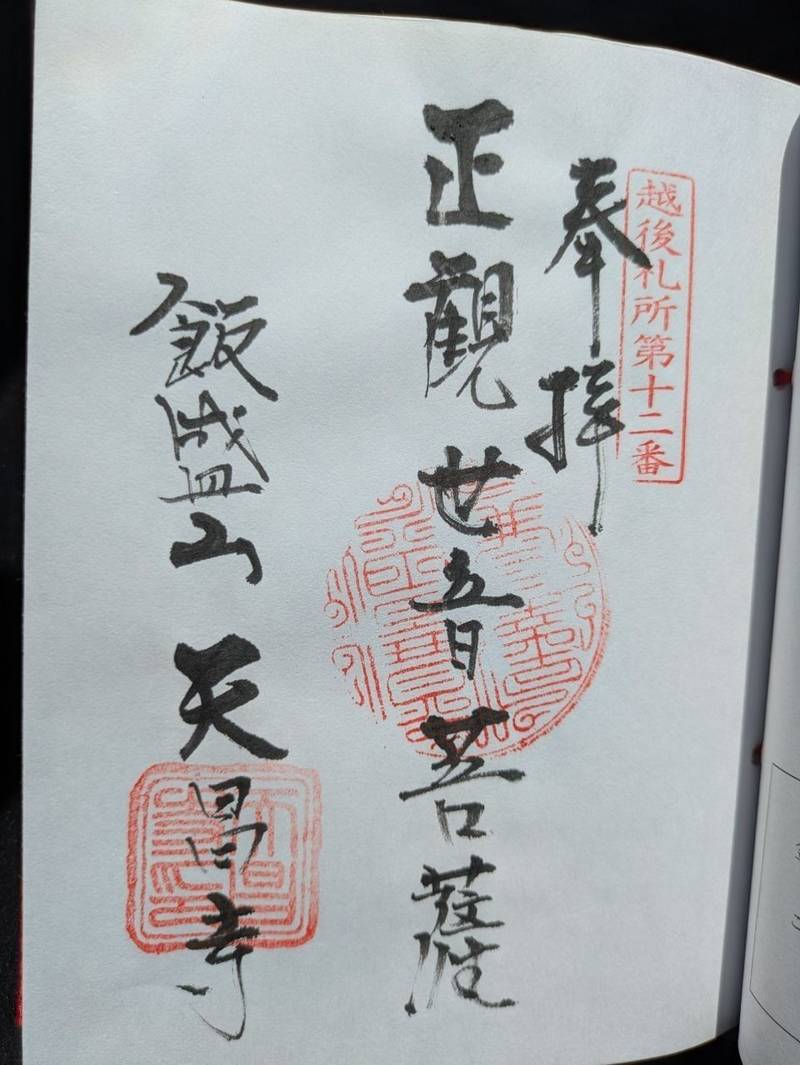 越後札所第十二番
奉拝
正觀世音菩薩
飯盛山 天昌寺